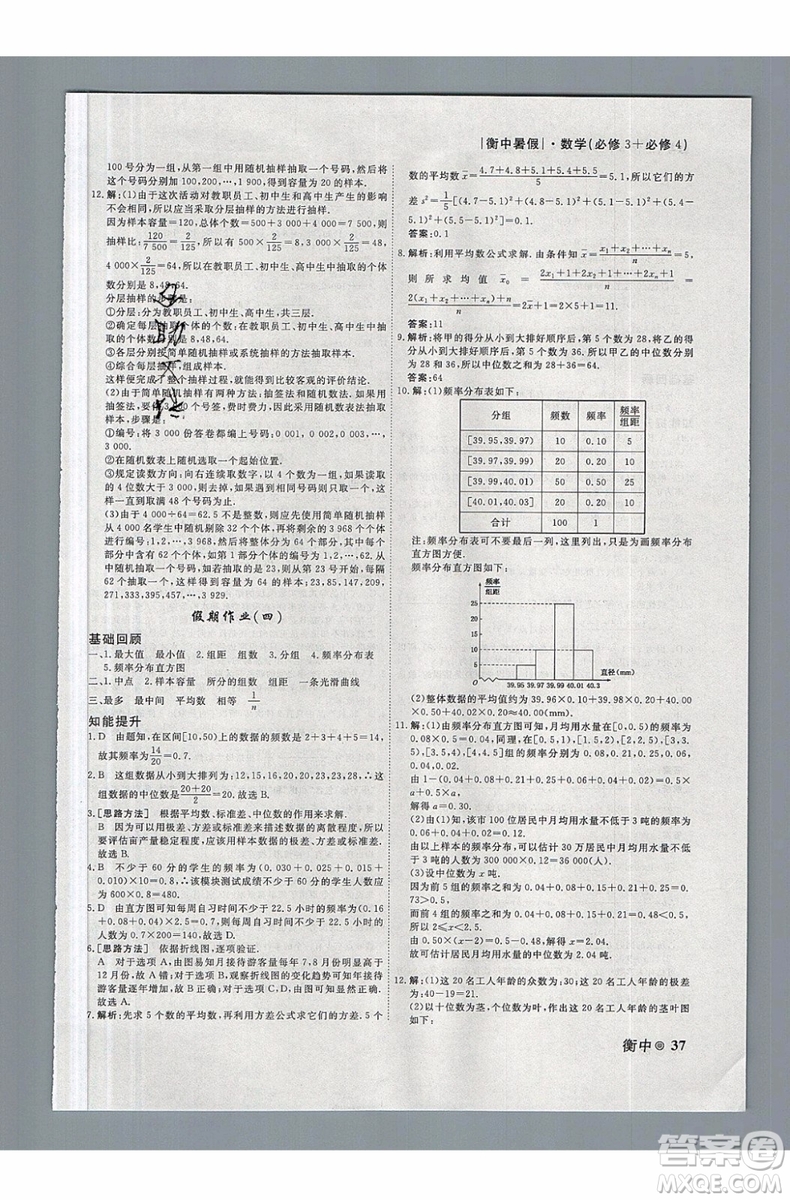 |衡中暑假|·数学(必修3+必修4)
100号分为一组,从第一组中用随机抽样抽取一个号码,然后
将这个号码分别加100,200,…,1 900,得容量为20的样本.
12.解:(1)由于这次活动对教职员工、初中生和高中生产生的影响
不会相同,所以应当采取分层抽样的方法进行抽样.
因为样本容量=120,总体个数=500+3 000+4 000=7 500,则
抽样比:120/7 500=2/125,所以有500×2/125=8,3 000×2/125=48,
4 000×2/125=64,所以在教职员工、初中生、高中生中抽取的个体
数分别是8,48,64.
分层抽样的步骤是:
①分层:分为教职员工、初中生、高中生,共三层.
②确定每层抽取个体的个数:在教职员工、初中生、高中生中抽
取的个体数分别是8,48,64.
③各层分别按简单随机抽样或系统抽样的方法抽取样本.
④综合每层抽样,组成样本.
这样便完成了整个抽样过程,就能得到比较客观的评价结论.
(2)由于简单随机抽样有两种方法:抽签法和随机数法.如果用
抽签法,要作3 000个号签,费时费力,因此采用随机数表法抽取
样本,步骤是:
①编号:将3 000份答卷都编上号码:0 001,0 002,0 003,…,
3 000.
②在随机数表上随机选取一个起始位置.
③规定读数方向,向右连续取数字,以4个数为一组,如果读取
的4位数大于3 000,则去掉,如果遇到相同号码则只取一个,这
样一直到取满48个号码为止.
(3)由于4 000÷64=62.5不是整数,则应先使用简单随机抽样
从4 000名学生中随机剔除32个个体,再将剩余的3 968个个体
进行编号:1,2,…,3 968,然后将整体分为64个部分,其中每个
部分中含有62个个体,如第1部分个体的编号为1,2,…,62.从
中随机抽取一个号码,如若抽取的是23,则从第23号开始,每隔
62个抽取一个,这样得到容量为64的样本:23,85,147,209,
271,333,395,457,…,3 929.
假期作业(四)
基础回顾
一、1.最大值 最小值 2.组距 组数 3.分组 4.频率分布表
5.频率分布直方图
二、1.中点 2.样本容量 分组数 组距 一条光滑曲线
三、最多 最中间 平均数 相等 1/n
知能提升
1.D 由题知,在区间[10,50)上的数据的频数是2+3+4+5=14,
故其频率为14/20=0.7.
2.B 这组数据从小到大排列为:12,15,18,20,20,22,27,28,这
组数据的中位数是(20+20)/2=20.故选B.
3.[思路方法] 根据平均数、中位数的作用来求解.
B 因为可以用极差、方差或标准差来描述数据的离散程度,所
以要评估亩产量稳定程度,应该用样本数据的极差、方差或标准
差.故选B.
4.B 不少于60分的学生的频率为(0.030+0.025+0.015+
0.010)×10=0.8,所以该模块测试成绩不少于60分的学生人数应
为600×0.8=480.故选B.
5.D 由直方图可知每周自习时间不少于22.5小时的频率为(0.16
+0.08+0.04)×2.5=0.7,则每周自习时间不少于22.5小时的
人数为0.7×200=140.故选D.
6.[思路方法] 依据折线图,逐项验证.
A 对于选项A,由图易知月接待游客量每年7,8月份明显高于
12月份,故A错;对于选项B,观察折线图的变化趋势可知年接
待游客量逐年增加,故B正确;对于选项C,D,由图可知显然
正确.
7.解析:先求5个数的平均数,再利用方差公式求它们的方差.5个
数的平均数x=(4.7+4.8+5.1+5.4+5.5)/5=5.1,所以它们的方
差s²=1/5[(4.7-5.1)²+(4.8-5.1)²+(5.1-5.1)²+(5.4-
5.1)²+(5.5-5.1)²]=0.1.
答案:0.1
8.解析:利用平均数公式求解.由条件知x=(x₁+x₂+…+xₙ)/n=5,
则所求均值x₀=(2x₁+1+2x₂+1+…+2xₙ+1)/n=
(2(x₁+x₂+…+xₙ)+n)/n=2×5+1=11.
答案:11
9.解析:将甲的得分从小到大排好顺序后,第5个数为28,将乙的得
分从小到大排好顺序后,第5个数为36,所以甲乙的中位数分别
为28和36,故和为28+36=64.
答案:64
10.解:(1)频率分布表如下:
分组 频数 频率 频率/组距
[39.95,39.97) 10 0.10 5
[39.97,39.99) 20 0.20 10
[39.99,40.01) 50 0.50 25
[40.01,40.03] 20 0.20 10
合计 100 1
注:频率分布表可不要最后一列,这里列出,只是为画频率分布
直方图方便.
频率分布直方图如下:
频率/组距
30
25
20
15
10
5
39.95 39.97 39.99 40.01 40.3
直径(mm)
(2)整体数据的平均值约为39.96×0.10+39.98×0.20+40.00
×0.50+40.02×0.20=40.00(mm).
11.解:(1)由频率分布直方图可知,月均用水量在[0,0.5)的频率为
0.08×0.5=0.04,同理,在[0.5,1),[1.5,2),[2,2.5),[3,3.5),
[3.5,4),[4,4.5]等组的频率分别为0.08,0.21,0.25,0.06,
0.04,0.02.
由1-(0.04+0.08+0.21+0.25+0.06+0.04+0.02)=2×0.5a,
解得a=0.30.
(2)由(1)知,该市100位居民中月均用水量不低于3吨的频率为
0.06+0.04+0.02=0.12.
由以上样本的频率分布,可以估计30万居民中月均用水量不低
于3吨的人数为300 000×0.12=36 000.
(3)设中位数为x吨.
因为前5组的频率之和为0.04+0.08+0.15+0.21+0.25=
0.73>0.5,
而前4组的频率之和为0.04+0.08+0.15+0.21=0.48<0.5,
所以2≤x<2.5.
由0.50×(x-2)=0.5-0.48,解得x=2.04.
故可估计居民月均用水量的中位数为2.04吨.
12.解:(1)这20名工人年龄的众数为:30;这20名工人年龄的极差
为:40-19=21.
(2)以十位数为茎,个位数为叶,作出这20名工人年龄的茎叶图
如下:
衡中 37
答案圈
MXQE.COM